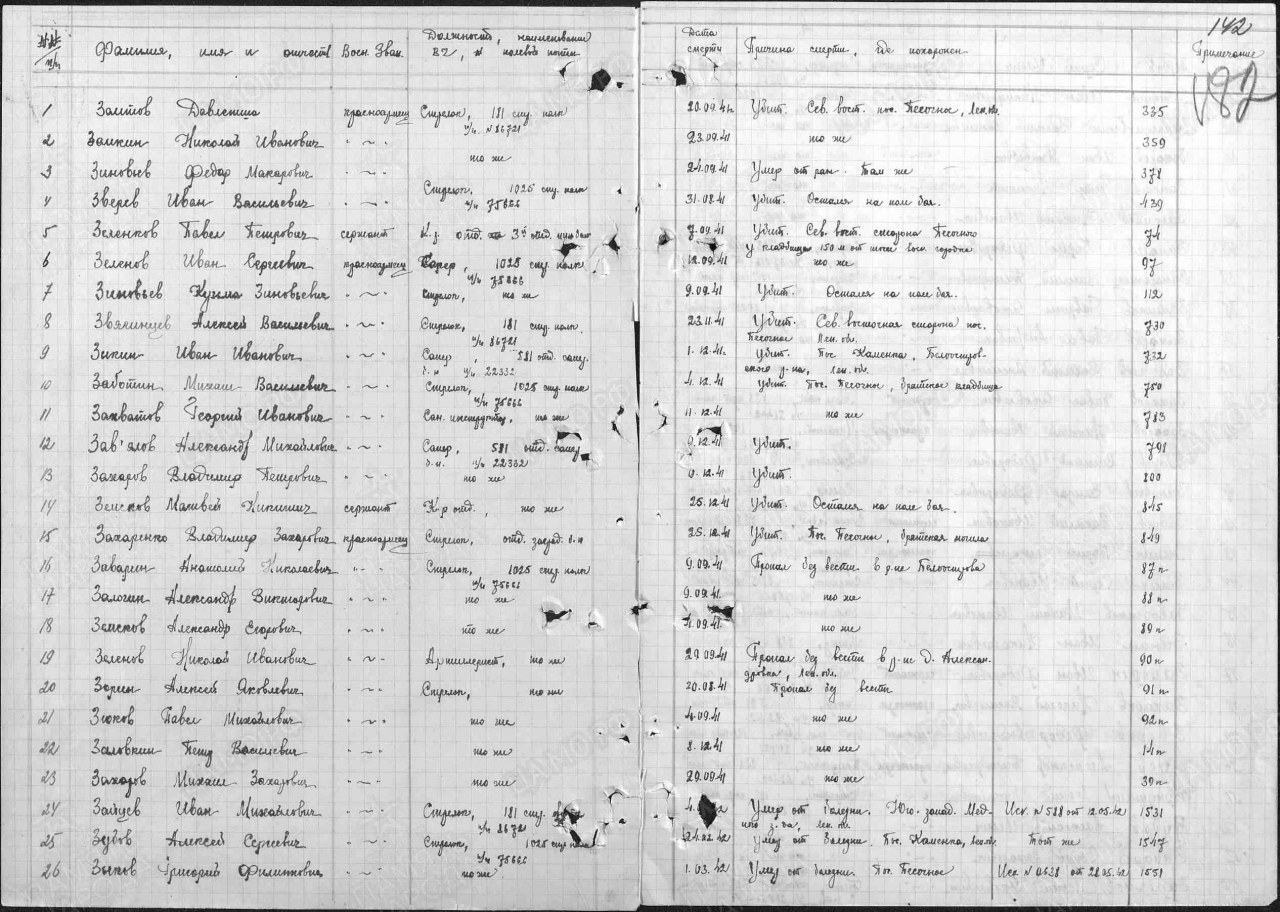 142
182
№№ п/п Фамилия, имя и отчество Воен. Зван. Должность, наименование В/Ч, № полевой почты Дата смерти Причина смерти, где похоронен Примечание
1 Залитов Давлетша красноармеец Стрелок, 181 стр. полк п/я. № 86721 20.09.41 Убит. Сев. вост. пос. Песочное, Лен. обл. 335
2 Заикин Николай Иванович -"- то же 23.09.41 то же 359
3 Зиновьев Федор Макарович -"- 24.09.41 Умер от ран. Там же 378
4 Зверев Иван Васильевич -"- Стрелок, 1025 стр. полк п/я 75666 31.08.41 Убит. Остался на поле боя. 439
5 Зеленков Павел Петрович сержант К-р отд. 3й отд. 7.09.41 Убит. Сев. вост. сторона Песочного у кладбища 150 м от 74
6 Зеленов Иван Сергеевич красноармеец Сапер, 1025 стр. полк п/я 75666 12.09.41 то же 97
7 Зиновьев Кузьма Зиновьевич -"- Стрелок, то же 9.09.41 Убит. Остался на поле боя. 112
8 Звягинцев Алексей Васильевич -"- Стрелок, 181 стр. полк п/я 86721 23.11.41 Убит. Сев. восточная сторона пос. Песочное Лен. обл. 730
9 Зикин Иван Иванович -"- Сапер, 581 отд. сапер. б-н п/я 22332 1.12.41 Убит. Пос. Каменка, Белоостровского р-на, Лен. обл. 732
10 Заботин Михаил Васильевич -"- Стрелок, 1025 стр. полк п/я 75666 4.12.41 Убит. Пос. Песочное, братское кладбище 750
11 Захватов Георгий Иванович -"- Сан. инструктор, то же 11.12.41 то же 783
12 Зав'ялов Александр Михайлович -"- Сапер, 581 отд. сапер. б-н п/я 22332 9.12.41 Убит. 791
13 Захаров Владимир Петрович -"- то же 12.41 Убит. 800
14 Земсков Матвей Никитич сержант К-р отд., то же 25.12.41 Убит. Остался на поле боя. 845
15 Захаренко Владимир Захарович красноармеец Стрелок, отд. заград. б-н 25.12.41 Убит. Пос. Песочное, братская могила 849
16 Заварин Анатолий Николаевич -"- Стрелок, 1025 стр. полк п/я 75666 9.09.41 Пропал без вести в р-не Белоострова 87п
17 Залогин Александр Викторович -"- то же 9.09.41 то же 88п
18 Земсков Александр Егорович -"- то же 09.41 то же 89п
19 Зеленов Николай Иванович -"- Артиллерист, то же 29.09.41 Пропал без вести в р-не д. Александровка, Лен. обл. 90п
20 Зорин Алексей Яковлевич -"- Стрелок, то же 20.08.41 Пропал без вести 91п
21 Зюков Павел Михайлович -"- то же 4.09.41 то же 92п
22 Заловкин Петр Васильевич -"- то же 8.12.41 то же 14п
23 Захаров Михаил Захарович -"- то же 29.09.41 то же 39п
24 Зайцев Иван Михайлович -"- Стрелок, 181 стр. п/я 86721 4. Умер от болезни. Юго-запад. Мед-ного з-да, Лен. обл. Исх. № 588 от 12.05.42 1531
25 Зубов Алексей Сергеевич -"- Стрелок, 1025 стр. полк п/я 75666 24.02.42 Умер от болезни. Пос. Каменка, Лен. обл. Тот же 1547
26 Зыков Григорий Филиппович -"- то же 1.03.42 Умер от болезни. Пос. Песочное Исх. № 0638 от 28.05.42 1551